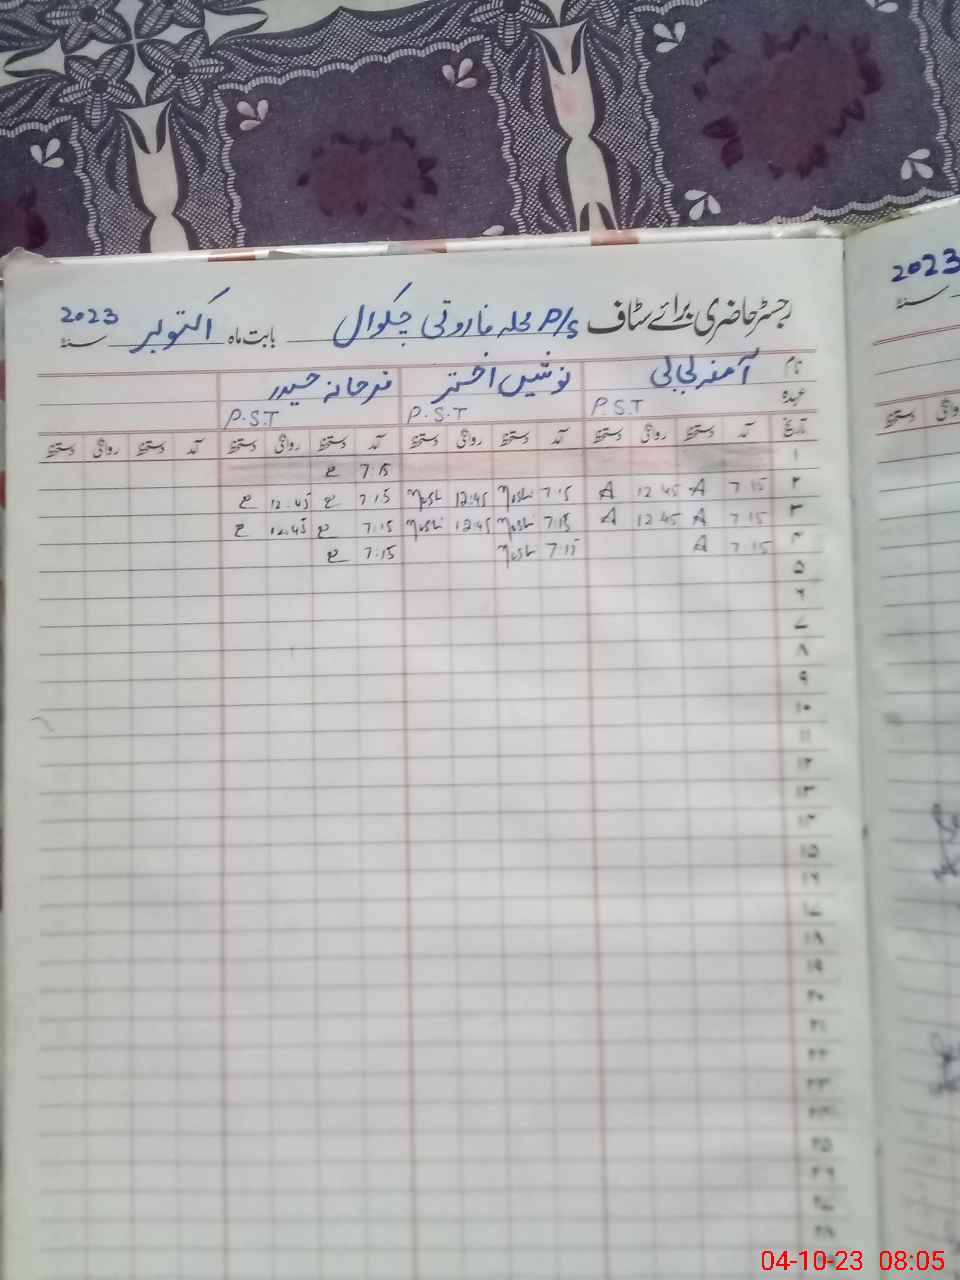 رجسٹر حاضری برائے سٹاف P/S محلہ فاروقی چکوال بابت ماہ اکتوبر سنہ 2023
نام آمنہ نوشین اختر فرحانہ حیدر
عہدہ P.S.T P.S.T P.S.T
تاریخ آمد دستخط روانگی دستخط آمد دستخط روانگی دستخط آمد دستخط روانگی دستخط آمد دستخط روانگی دستخط
۱ 7.15 ع
۲ 7.15 A 12 45 A 7.15 Nosh 12:45 Nosh 7.15 ع 12.45 ع
۳ 7.15 A 12.45 A 7.15 Nosh 12.45 Nosh 7.15 ع 12.45 ع
۴ 7.15 A 7.15 Nosh 7.15 ع
۵
۶
۷
۸
۹
۱۰
۱۱
۱۲
۱۳
۱۴
۱۵
۱۶
۱۷
۱۸
۱۹
۲۰
۲۱
۲۲
۲۳
۲۴
۲۵
۲۶
۲۷
۲۸
2023
سنہ
دستخط
04-10-23 08:05